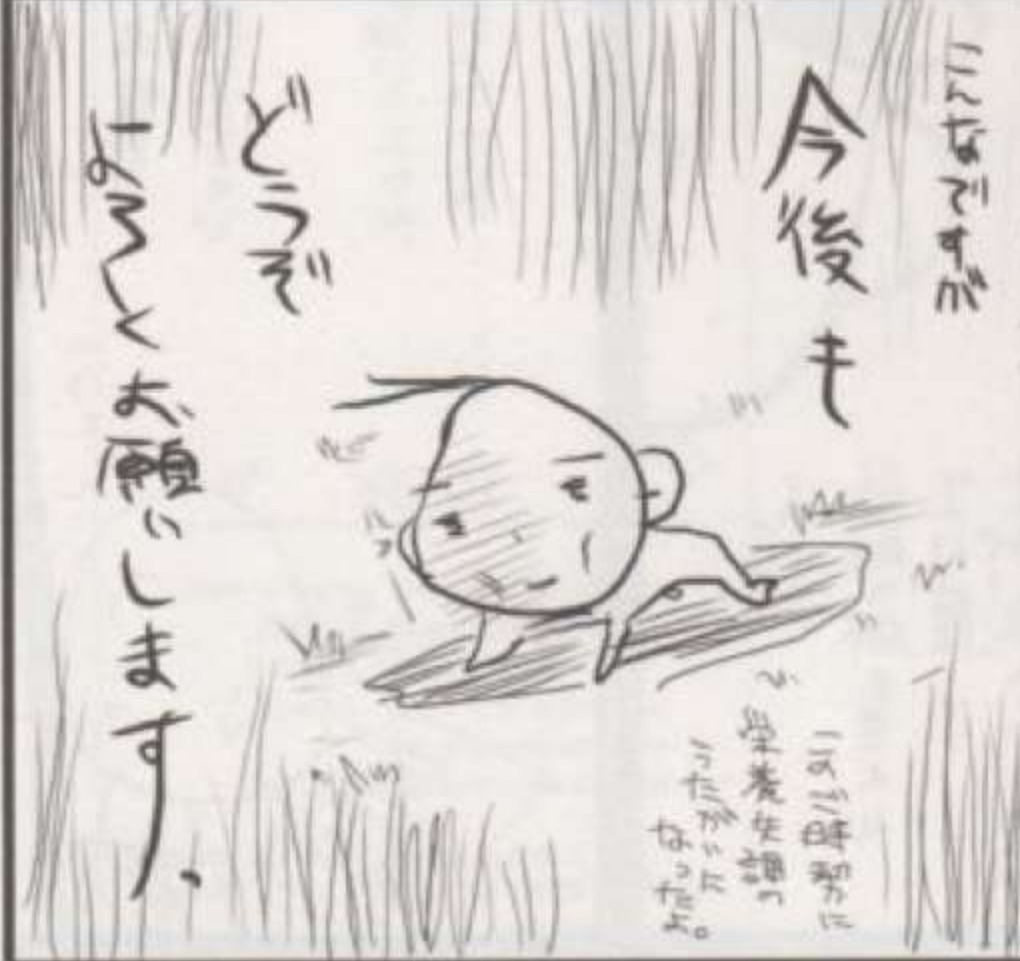 こんなですが
今後も
どうぞ
よろしくお願いします。
このご時勢に
栄養失調の
うたがいに
なったよ。